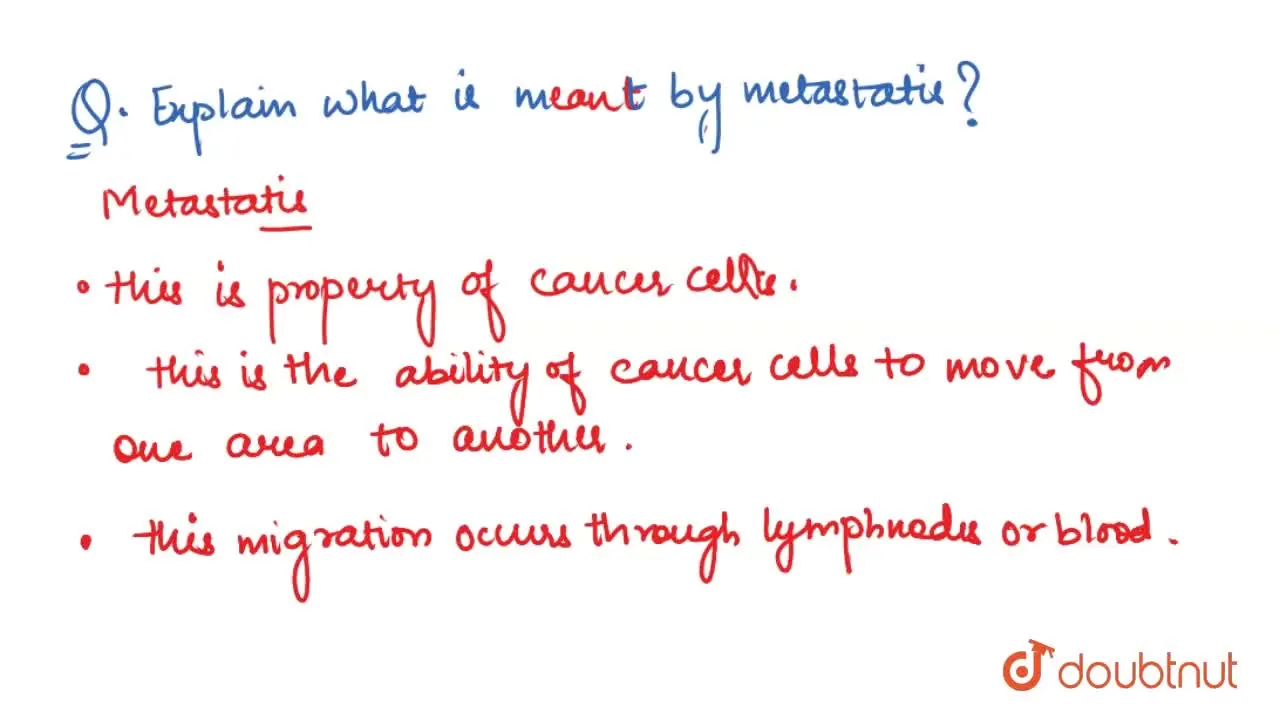 Q. Explain what is meant by metastatis?
Metastatis
• this is property of cancer cells.
• this is the ability of cancer cells to move from
one area to another.
• this migration occurs through lymphnodes or blood.
doubtnut